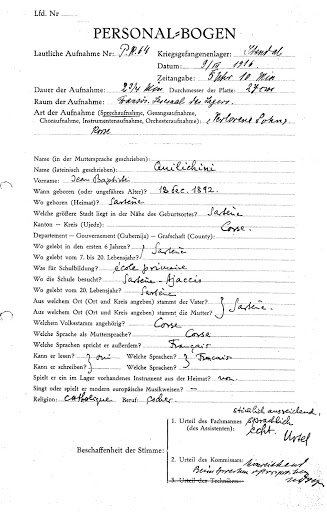 Lfd. Nr
PERSONAL-BOGEN
Lautliche Aufnahme Nr: P.K. 64 Kriegsgefangenenlager:
Datum: 1916
Zeitangabe: 5 Uhr 10 Min
Dauer der Aufnahme: 2 3/4 Min Durchmesser der Platte: 27 cm
Raum der Aufnahme: des Lagers.
Art der Aufnahme (Sprechaufnahme, Gesangsaufnahme,
Choraufnahme, Instrumentenaufnahme, Orchesteraufnahme): Verlorene Sohn,
Name (in der Muttersprache geschrieben):
Name (lateinisch geschrieben):
Vorname: Jean Baptiste
Wann geboren (oder ungefähres Alter)? 18 Dec. 1892.
Wo geboren (Heimat)? Sartène
Welche größere Stadt liegt in der Nähe des Geburtsortes? Sartène
Kanton — Kreis (Ujedz): Corse.
Departement — Gouvernement (Gubernija) — Grafschaft (County):
Wo gelebt in den ersten 6 Jahren? } Sartène
Wo gelebt vom 7. bis 20. Lebensjahr?
Was für Schulbildung? école primaire
Wo die Schule besucht? Sartène - Ajaccio
Wo gelebt vom 20. Lebensjahr? Sartène
Aus welchem Ort (Ort und Kreis angeben) stammt der Vater? } Sartène.
Aus welchem Ort (Ort und Kreis angeben) stammt die Mutter?
Welchem Volksstamm angehörig? Corse
Welche Sprache als Muttersprache? Corse
Welche Sprachen spricht er außerdem? Français
Kann er lesen? } oui Welche Sprachen? } Français
Kann er schreiben? Welche Sprachen?
Spielt er ein im Lager vorhandenes Instrument aus der Heimat? non
Singt oder spielt er modern europäische Musikweisen? —
Religion: catholique Beruf:
Beschaffenheit der Stimme:
1. Urteil des Fachmannes
(des Assistenten):
echt. Urtel
2. Urteil des Kommissars:
3. Urteil des Technikers: